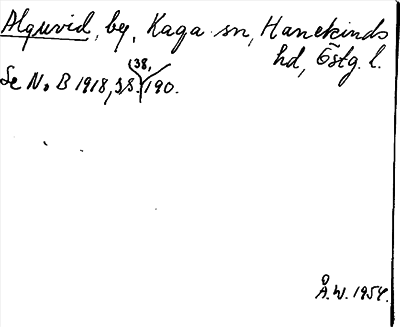 Alguvid, by, Kaga sn, Hanekinds
hd, Östg. l.
Se N. B 1918, ss. 138, 190.
Å.W. 1954.